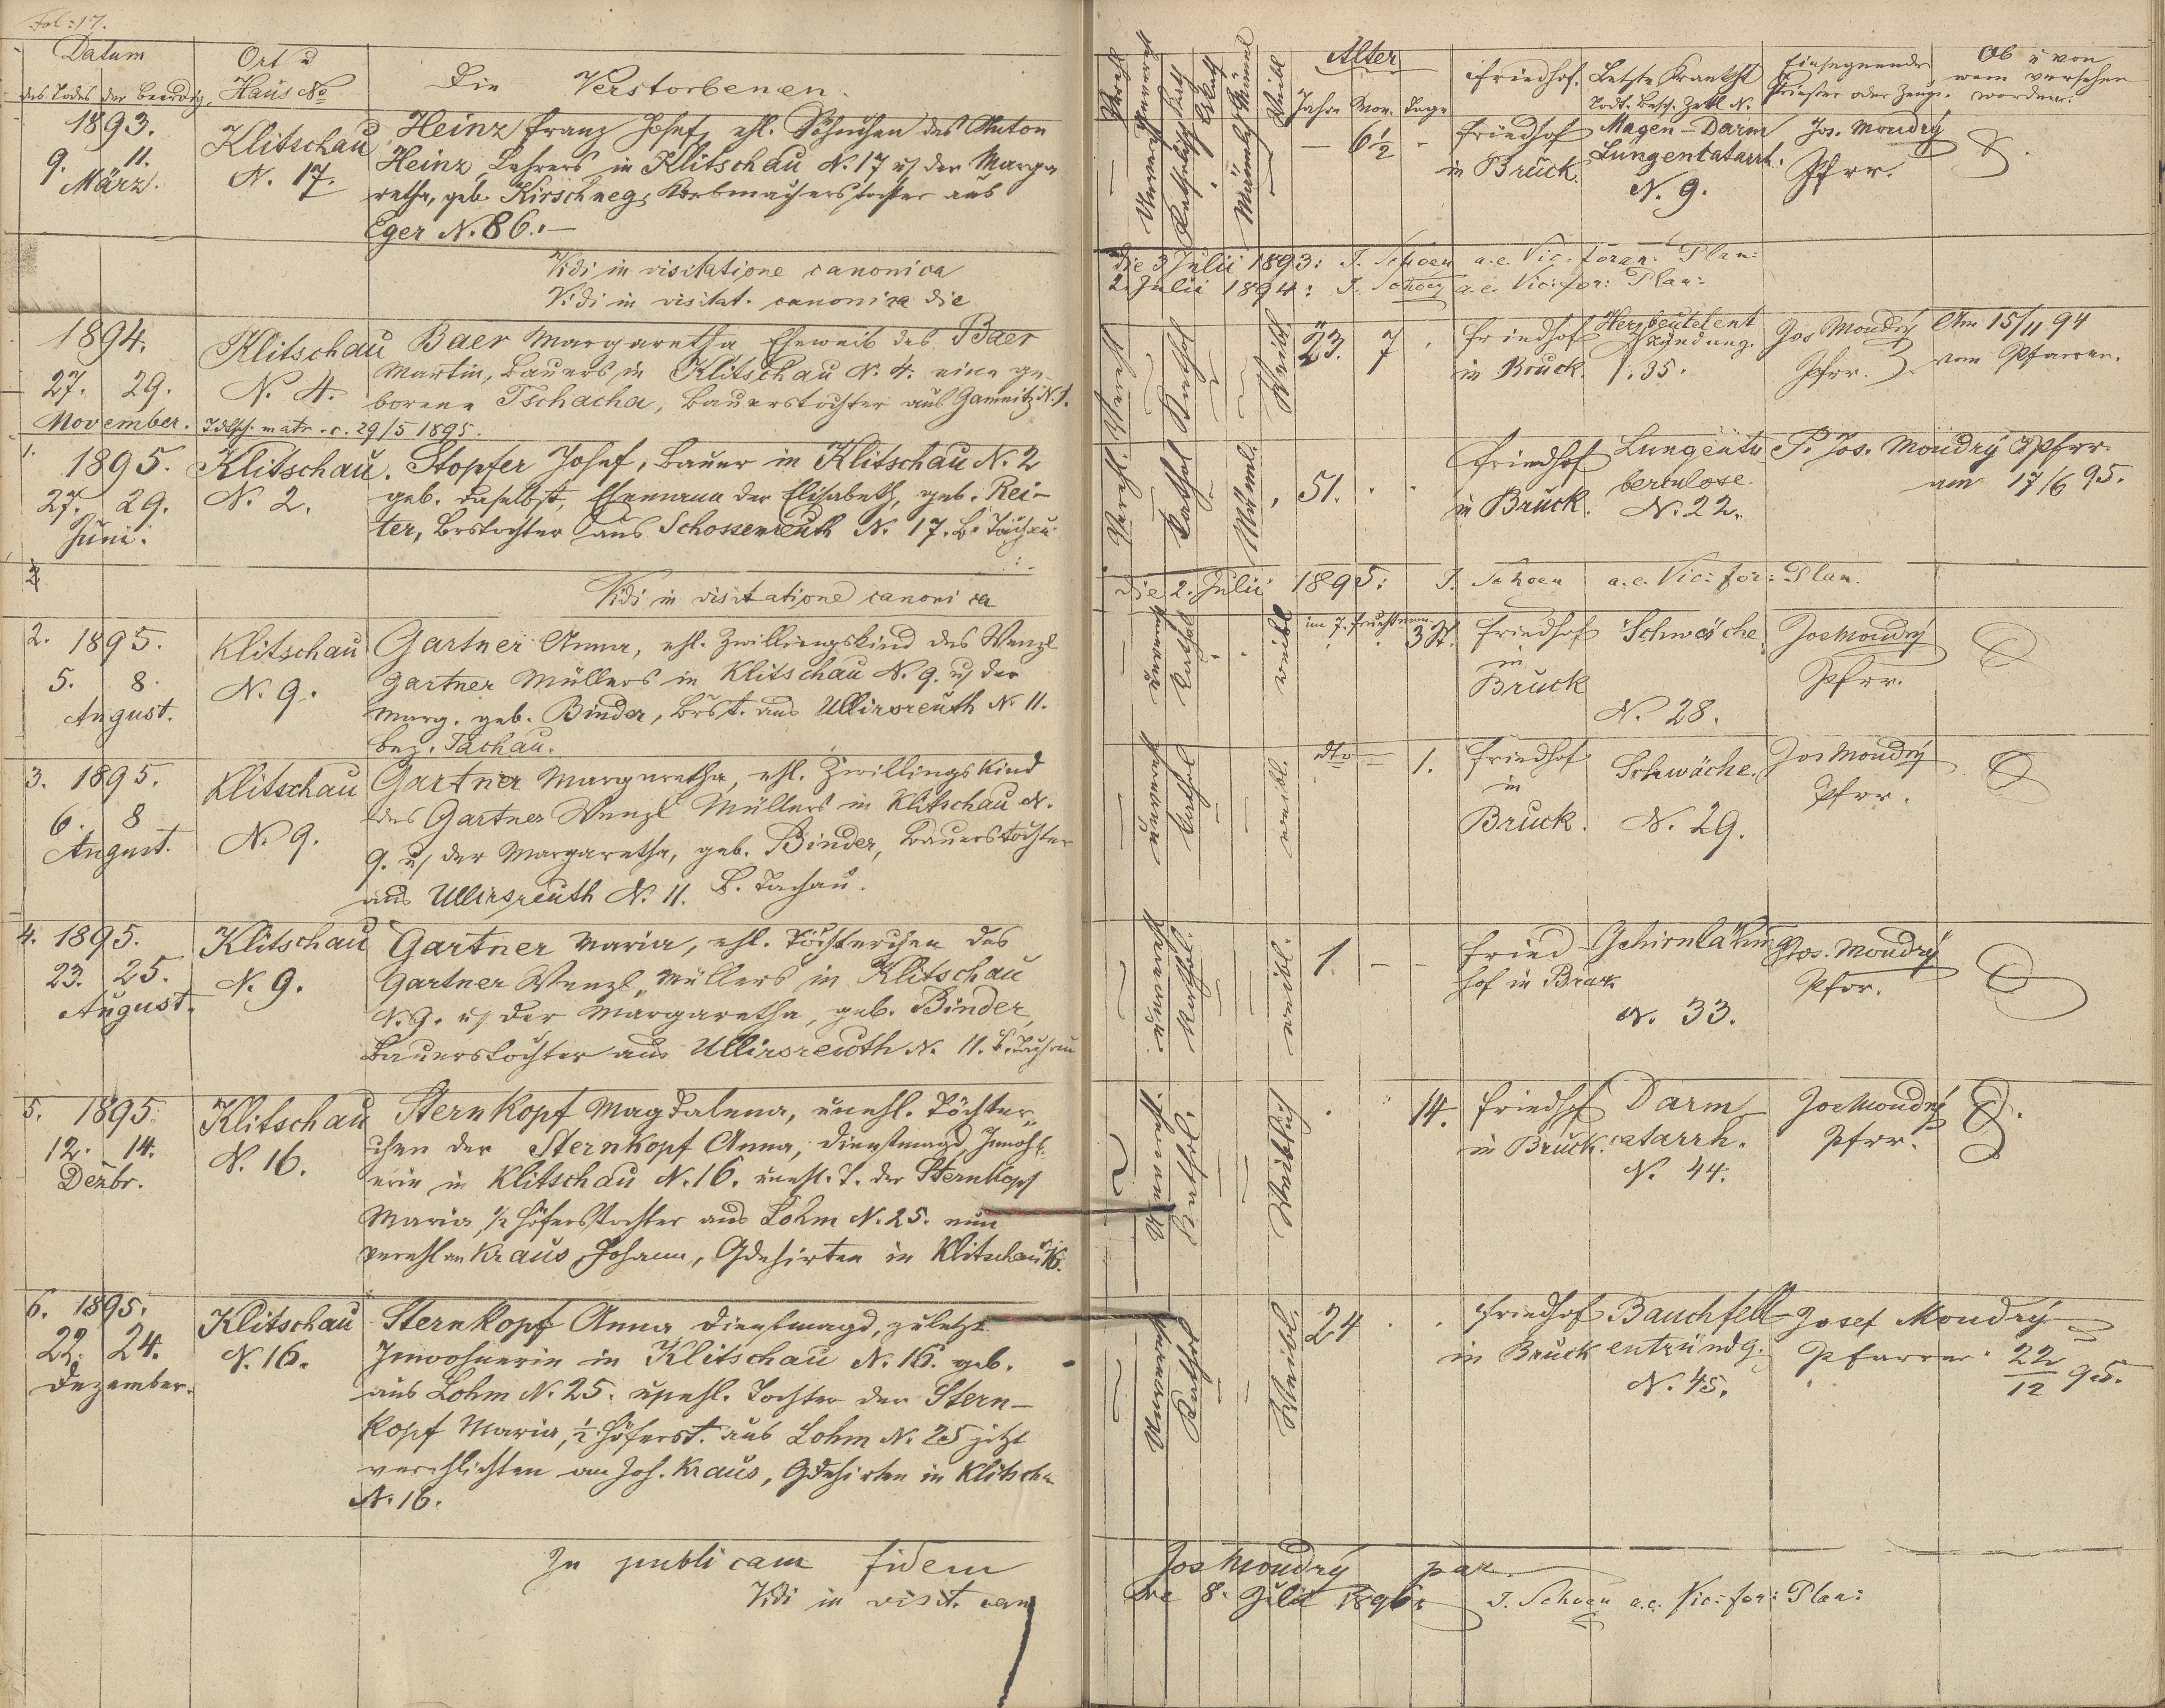 Fol: 17.
Datum
des Todes der Beerdig.
Ort u
Haus No
Die Verstorbenen.
1893.
9. 11.
März.
Klitschau
N. 17.
Heinz Franz Josef, ehl. Söhnchen des Anton
Heinz, Lehrers in Klitschau N. 17 u. der Marga
retha, geb. Kirschneg, Korbmacherstochter aus
Eger N. 86.
Vidi in visitatione canonica
Vidi in visitat. canonica die
1894.
27. 29.
November.
Klitschau
N. 4.
Baer Margaretha Eheweib des Baer
Martin, Bauers in Klitschau N. 4. eine ge-
borene Tschacha, Bauerstochter aus Gamnitz N. 1.
Tdtsch. matr. c. 29/5 1895.
1. 1895.
27. 29.
Juni.
Klitschau.
N. 2.
Stopfer Josef, Bauer in Klitschau N. 2
geb. daselbst, Ehemann der Elisabeth, geb. Rei-
ter, Brstochter aus Schossenreuth N. 17. B. Tachau
Vidi in visitatione canonica
2. 1895.
5. 8.
August.
Klitschau
N. 9.
Gartner Anna, ehl. Zwillingskind des Wenzl
Gartner Müllers in Klitschau N. 9. u. der
Marg. geb. Binder, Brst. aus Ullirsreuth N. 11.
bez. Tachau.
3. 1895.
6. 8
August.
Klitschau
N. 9.
Gartner Margaretha, ehl. Zwillingskind
des Gartner Wenzl Müllers in Klitschau N.
9. u. der Margaretha, geb. Binder, Bauerstochter
aus Ullirsreuth N. 11. B. Tachau.
4. 1895.
23. 25.
August.
Klitschau
N. 9.
Gartner Maria, ehl. Töchterchen des
Gartner Wenzl, Müllers in Klitschau
N. 9. u. der Margaretha, geb. Binder,
Bauerstochter aus Ullirsreuth N. 11. B. Tachau
5. 1895.
12. 14.
Dezbr.
Klitschau
N. 16.
Sternkopf Magdalena, unehl. Töchter„
chen der Sternkopf Anna, Dienstmagd, Inwohn-
erin in Klitschau N. 16. unehl. T. der Sternkopf
Maria, 1/2 Höferstochter aus Lohm N. 25. nun
verehl. an Kraus Johann, Gdehirten in Klitschau N. 16.
6. 1895.
22. 24.
Dezember.
Klitschau
N. 16.
Sternkopf Anna Dienstmagd, zuletzt
Inwohnerin in Klitschau N. 16. geb.
aus Lohm N. 25. unehl. Tochter der Stern-
kopf Maria, 1/2 Höferst. aus Lohm N. 25 jetzt
verehlichten an Joh. Kraus, Gdehirten in Klitschau
N. 16.
In publicam fidem
Vidi in visit. can
Verehl
Unverehl
Katholisch
Männlich
Weibl
Alter
Jahre Mon. Tage
Friedhof.
Letzte Krankht
Todt. Besch. Zettl N.
Einsegnender
Priester oder Zeuge.
Ob u von
wem versehen
worden.
6 1/2
Friedhof
in Bruck.
Magen-Darm
Lungenkatarrh.
N. 9.
Jos. Moudrý
Pfrr.
die 3 Julii 1893: J. Schoen a.e. Vic. foran: Plan:
2. Julii 1894: J. Schoen a.e. Vic: for: Plan:
Verehl
Kathol
Weibl
23. 7
Friedhof
in Bruck.
Herzbeutelent
zündung.
N. 35.
Jos Moudrý
Pfrr.
Am 15/11 94
vom Pfarrer.
Verehl.
Kathol
Männl.
51.
Friedhof
in Bruck.
Lungentu
berculose.
N. 22.
P. Jos. Moudrý Pfrr.
am 17/6 95.
die 2. Julii 1895: J. Schoen a.e. Vic: for: Plan.
unverehl
Kathol
weibl
3 St.
Friedhof
in
Bruck
Schwäche
N. 28.
Jos Moudrý
Pfrr.
unverehl
Kathol
weibl.
dto 1.
Friedhof
in
Bruck.
Schwäche.
N. 29.
Jos Moudrý
Pfrr.
unverehl
Kathol.
weibl.
1
Fried
hof in Bruck
Gehirnlähmg
N. 33.
Jos. Moudrý
Pfrr.
Unverehl.
Kathol.
Weiblich
14.
Friedhof
in Bruck.
Darm
catarrh.
N. 44.
Jos Moudrý
Pfrr.
Unverehl
Kathol
Weibl.
24
Friedhof
in Bruck
Bauchfell
entzündg.
N. 45.
Josef Moudrý
Pfarrer 22/12 95.
Jos Moudrý par.
die 8. Julii 1896: J. Schoen a.e. Vic: for: Plan: